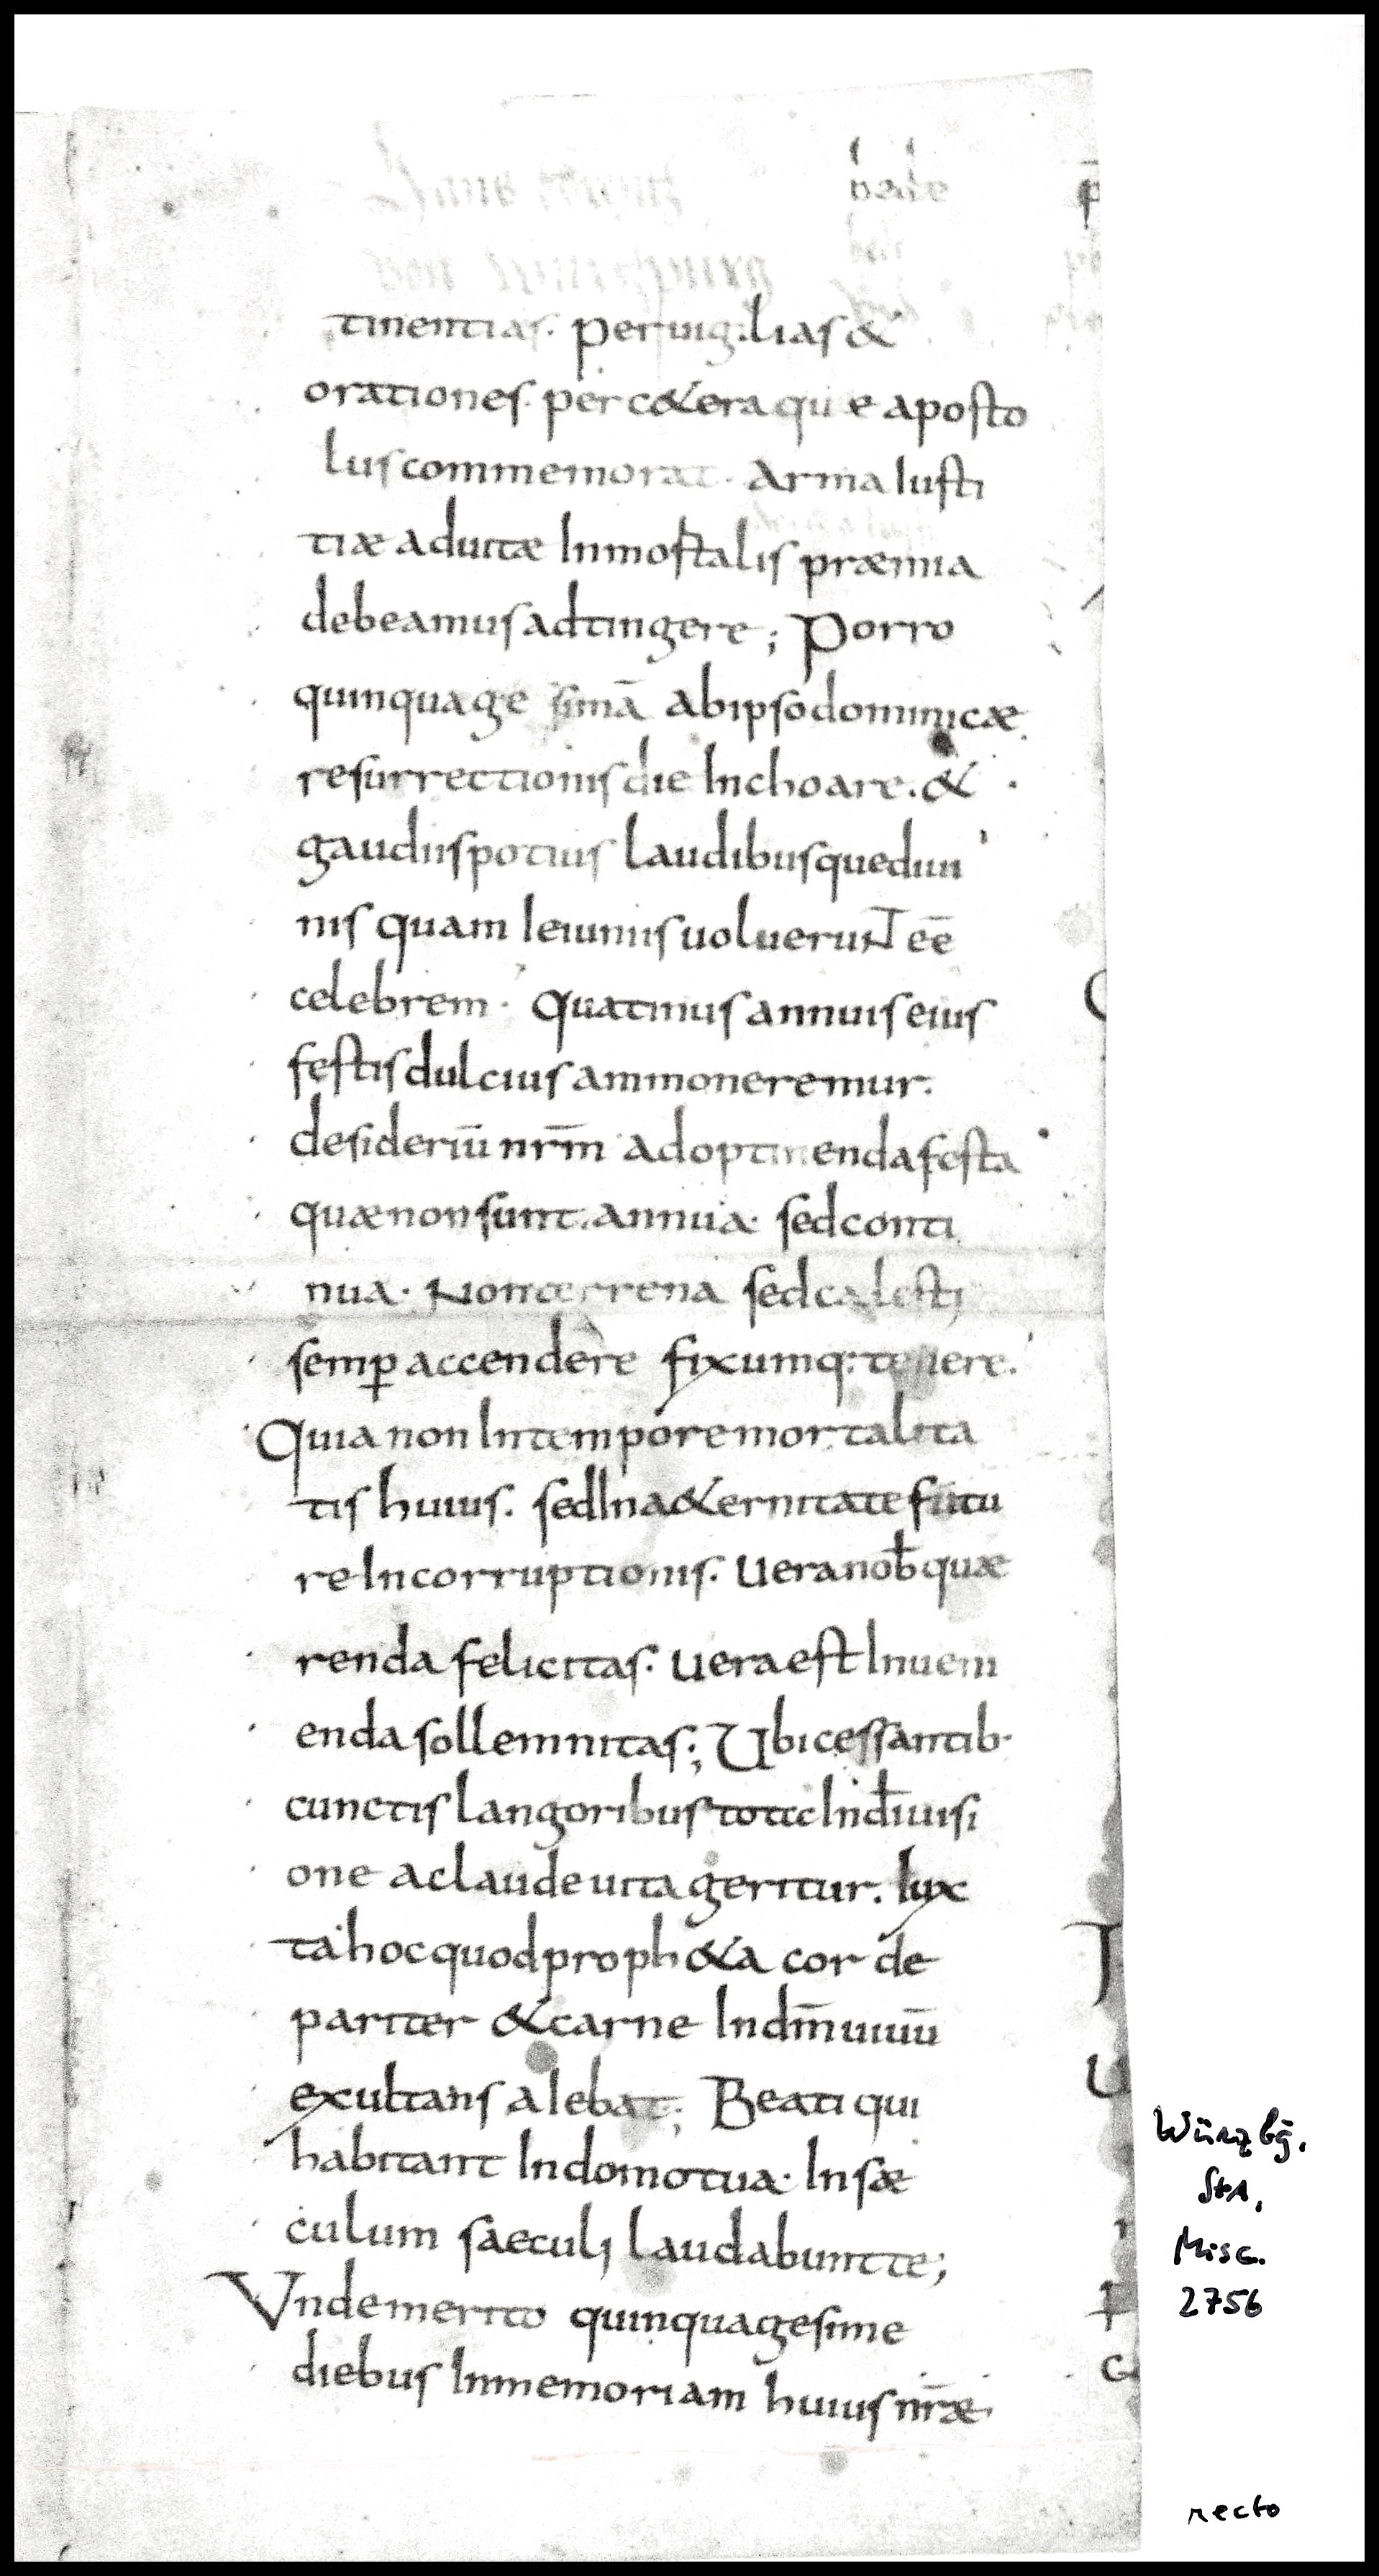 tinentias. per uigilias &
orationes. per c&era que aposto
lus commemorat. Arma Iusti
tiæ ad uitæ Inmortalis præmia
debeamus adtingere; Porro
quinquagesimā ab ipso dominicæ
resurrectionis die Inchoare. &
gaudiis potius laudibusque diui
nis quam Ieiuniis uoluerunt eē
celebrem. Quatinus annuis eius
festis dulcius ammoneremur.
desideriū nr̄m ad optinenda festa
quæ non sunt annua. sed conti
nua. Non terrena sed cælesti
semp̄ accendere fixumq: tenere.
Quia non In tempore mortalita
tis huius. sed In a&ernitate futu
re Incorruptionis. uera nob̄ quæ
renda felicitas. uera est Inueni
enda sollemnitas; Ubi cessantib.
cunctis langoribus tota In dī uisi
one ac laude uita geritur. Iux
ta hoc quod proph&a cor de
pariter & carne In dm̄ uiuū
exultans alebat; Beati qui
habitant In domo tua. In sæ
culum saeculi laudabunt te;
Unde merito quinquagesime
diebus In memoriam huius nr̄æ
Würzbg.
StA,
Misc.
2756
recto